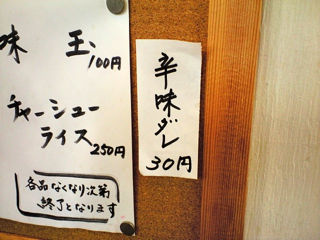 味玉 100円
チャーシュー
ライス 250円
各品なくなり次第
終了となります
辛味ダレ
30円